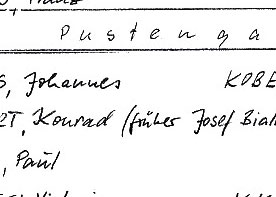 P u s t e n g a
S, Johannes KOBE
RT, Konrad (früher Josef Bial
, Paul